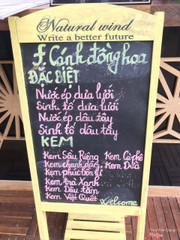 Natural wind
Write a better future
F. Cánh đồng hoa
ĐẶC BIỆT
Nước ép dưa lưới
Sinh tố dưa lưới
Nước dâu tây
Sinh tố dâu tây
KEM
Kem Sầu Riêng Kem Cà phê
Kem chanh dây Kem Dừa
Kem phúc bồn tử
Kem trà Xanh
Kem Dâu tằm
Kem Việt Quất
Welcome